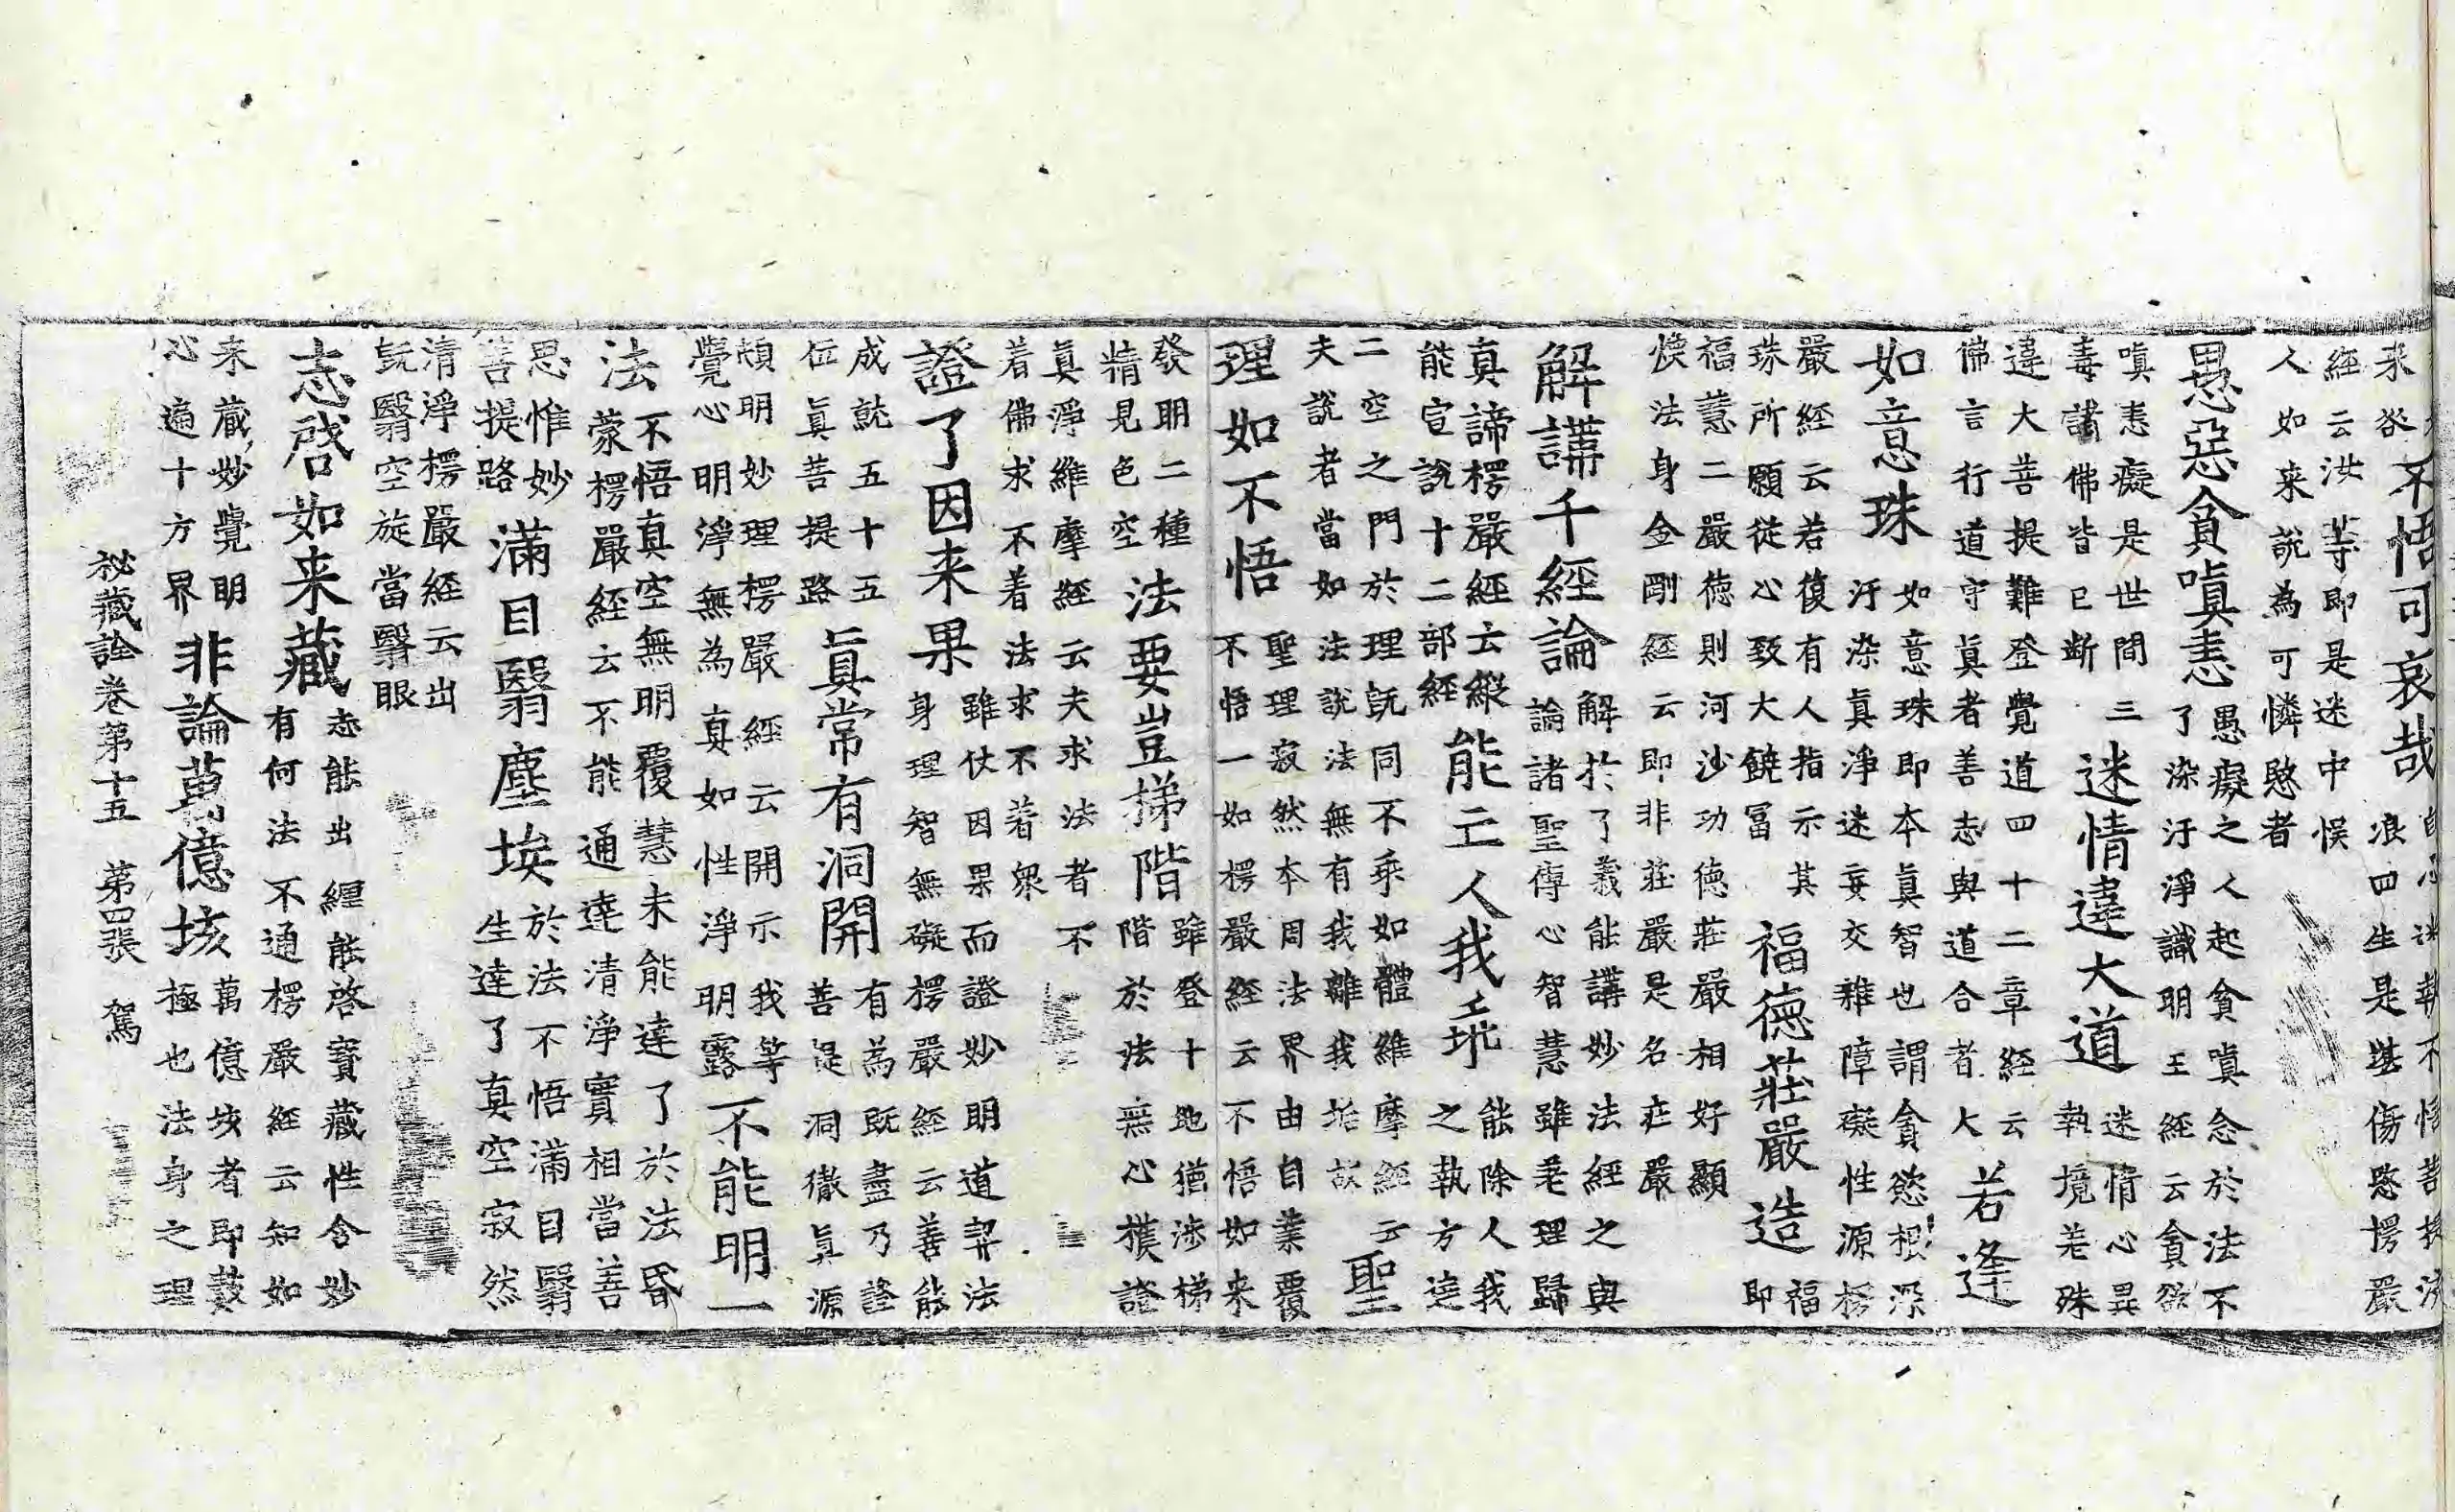 来咎
不悟可哀哉
自心迷執不悟菩提流
浪四生是堪傷愍楞嚴
經云汝等即是迷中悮
人如来說為可憐愍者
愚惡貪嗔恚
愚癡之人起貪嗔念於法不
了染汙淨識明王經云貪欲
嗔恚癡是世間三
毒諸佛皆已断
迷情違大道
迷情心異
執境差殊
違大菩提難登覺道四十二章經云
佛言行道守真者善志與道合者大
若逢
如意珠
如意珠即本真智也謂貪慾根深
汙染真淨迷妄交雜障礙性源楞
嚴經云若復有人指示其
珠所願従心致大饒冨
福徳莊嚴造
福
即
福慧二嚴徳則河沙功徳莊嚴相好顯
煥法身金剛經云即非莊嚴是名莊嚴
解講千經論
解於了義能講妙法經之與
論諸聖傳心智慧雖差理歸
真諦楞嚴經云縱
能宣說十二部經
能亡人我乖
能除人我
之執方達
二空之門於理既同不乖如體維摩經云
夫說者當如法說法無有我離我垢故
聖
理如不悟
聖理寂然本周法界由自業覆
不悟一如楞嚴經云不悟如来
發明二種
精見色空
法要豈梯階
雖登十地猶涉梯
階於法無心樸證
真淨維摩經云夫求法者不
着佛求不着法求不著衆
證了因来果
雖仗因果而證妙明道契法
身理智無礙楞嚴經云善能
成就五十五
位真菩提路
真常有洞開
有為既盡乃證
菩提洞徹真源
頓明妙理楞嚴經云開示我等
覺心明淨無為真如性淨明露
不能明一
法
不悟真空無明覆慧未能達了於法昏
蒙楞嚴經云不能通達清淨實相當善
思惟妙
菩提路
滿目翳塵埃
於法不悟滿目翳
生達了真空寂然
清淨楞嚴經云出
既翳空旋當翳眼
志啓如来藏
志能出纏能啓寶藏性含妙
有何法不通楞嚴經云知如
来藏妙覺明
心遍十方界
非論萬億垓
萬億垓者即數
極也法身之理
秘藏詮卷第十五 第四張 駕